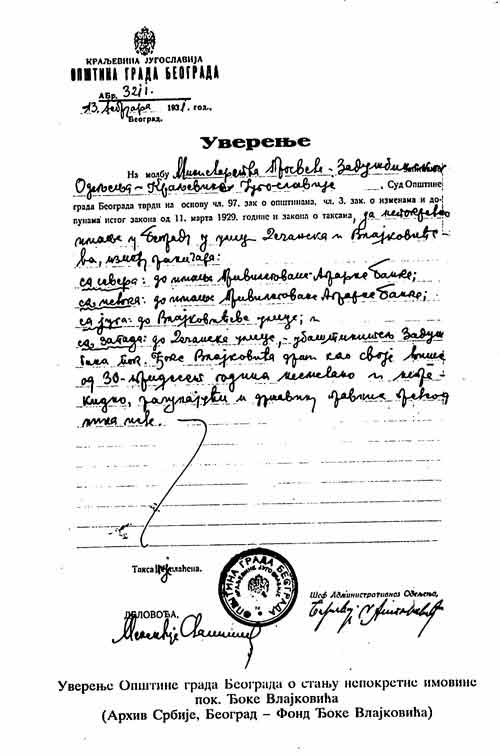 КРАЉЕВИНА ЈУГОСЛАВИЈА
ОПШТИНА ГРАДА БЕОГРАДА
АБр. 32/I.
13. фебруара 1931. год.,
Београд.
Уверење
На молбу Министарства Просвете – Задужбинског
Одељења – Краљевине Југославије, Суд Општине
града Београда тврди на основу чл. 97. зак о општинама, чл. 3. зак. о изменама и до-
пунама истог закона од 11. марта 1929. године и закона о таксама, да непокретно
имање у Београду у улици Дечанска и Влајковиће-
ва, између
са севера: до имања Привилеговане Аграрне Банке;
са истока: до имања Привилеговане Аграрне Банке;
са југа: до Влајковићеве улице; и
са запада: до Дечанске улице, Задуж-
бина пок. Ђоке Влајковића држи као своје више
од 30-тридесет година несметано и непре-
кидно, рачунајући и
Такса плаћена.
ОПШТИНА ГРАДА БЕОГРАДА
КРАЉЕВИНЕ ЈУГОСЛАВИЈЕ
ДЕЛОВОЂА,
Шеф Административног Одељења,
Уверење Општине града Београда о стању непокретне имовине
пок. Ђоке Влајковића
(Архив Србије, Београд – Фонд Ђоке Влајковића)